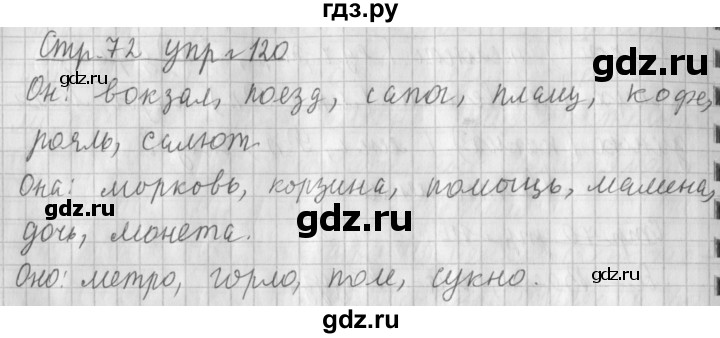 гдз.ру
Стр. 72 упр. 120
gdz.ru
gdz.ru
Он: вокзал, поезд, сапог, плащ, кофе,
рояль, салют.
Она: морковь, корзина, помощь,
gdz.ru
gdz.ru
дочь, монета.
Оно: метро, горло, поле, сукно.
gdz.ru
gdz.ru